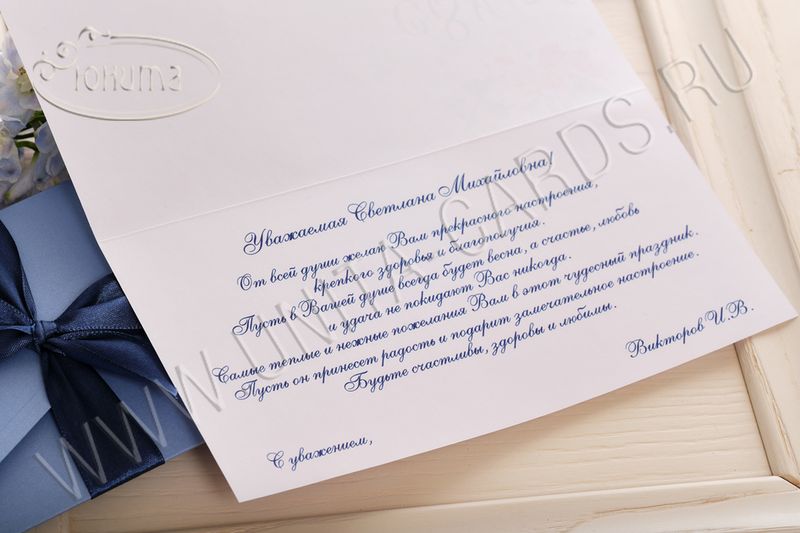 Юнита
WWW.UNITA-CARDS.RU
Уважаемая Светлана Михайловна!
От всей души желаю Вам прекрасного настроения,
крепкого здоровья и благополучия.
Пусть в Вашей душе всегда будет весна, а счастье, любовь
и удача не покидают Вас никогда.
Самые теплые и нежные пожелания Вам в этот чудесный праздник.
Пусть он принесет радость и подарит замечательное настроение.
Будьте счастливы, здоровы и любимы.
С уважением,
Викторов И.В.